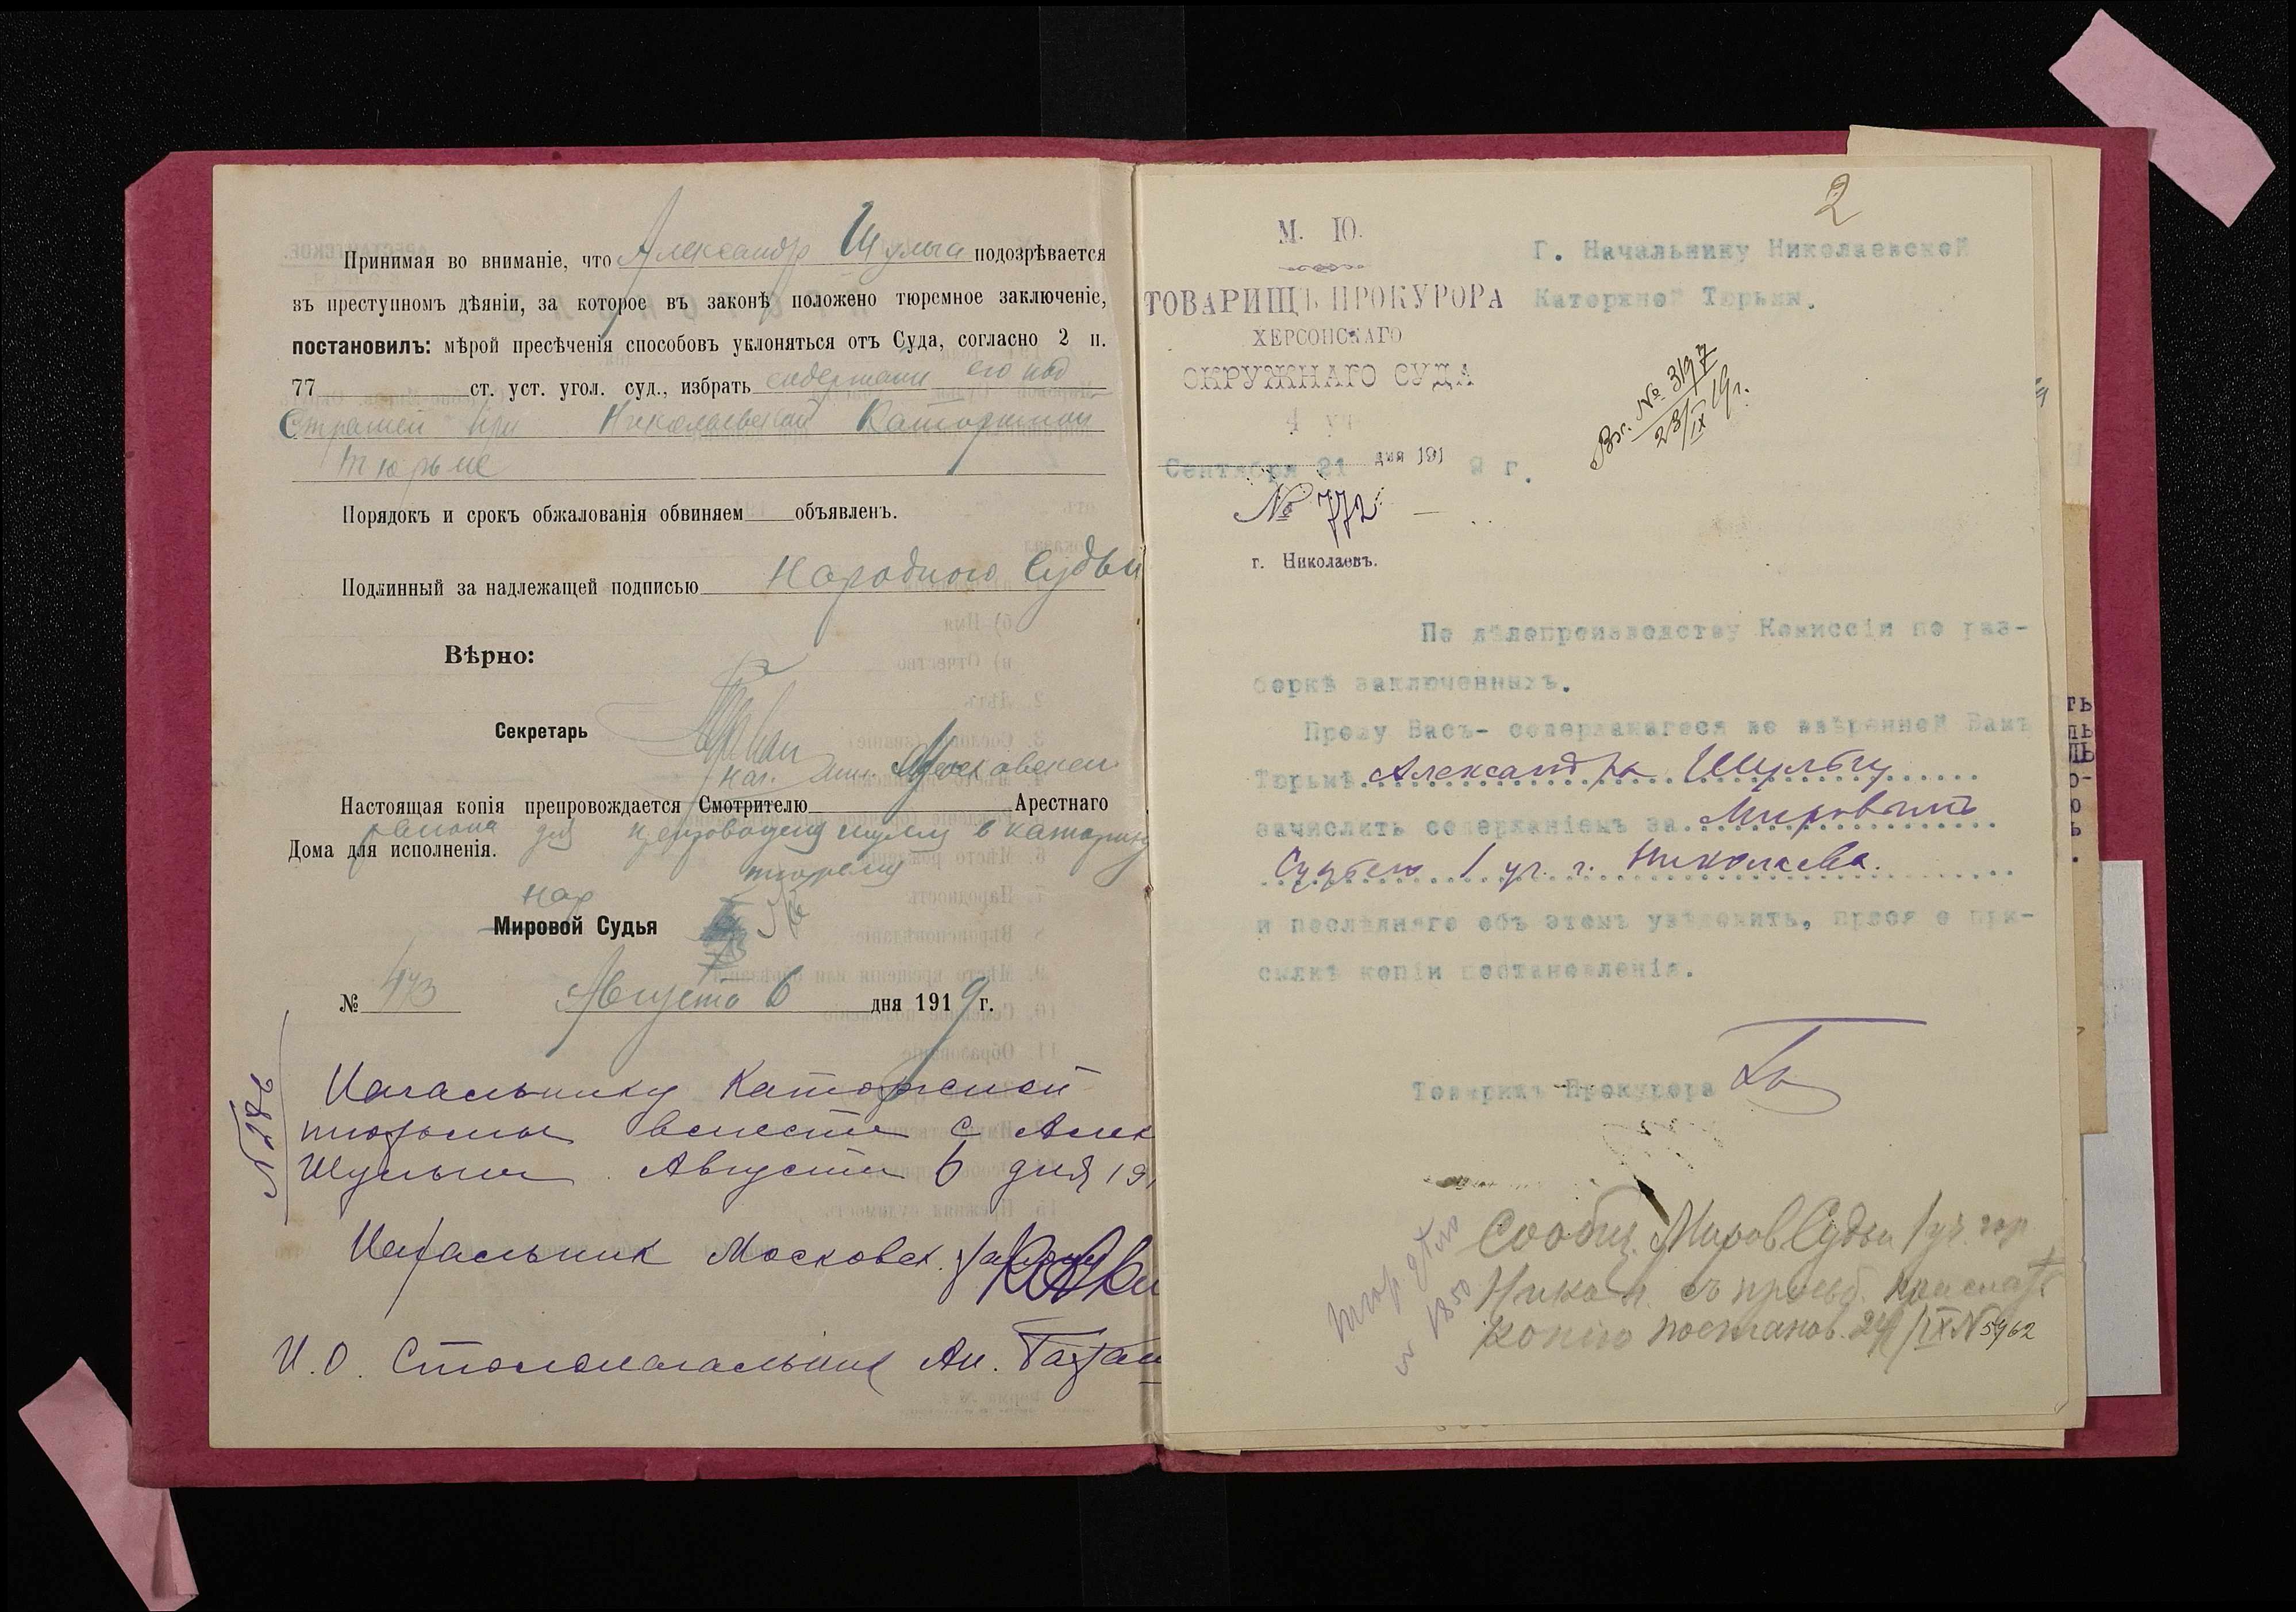 Принимая во вниманіе, что Александр Шульга подозрѣвается
въ преступномъ дѣяніи, за которое въ законѣ положено тюремное заключеніе,
постановилъ: мѣрой пресѣченія способовъ уклоняться отъ Суда, согласно 2 п.
77 ст. уст. угол. суд., избрать содержание его под
Стражей при Николаевской Каторжной
тюрьме
Порядокъ и срокъ обжалованія обвиняем объявленъ.
Подлинный за надлежащей подписью Народного Судьи
Вѣрно:
Секретарь
Нач. Московскаго
Настоящая копія препровождается Смотрителю Арестнаго
района для препровождения в каторжную
Дома для исполненія.
тюрьму
Нар
Мировой Судья
№ 473 Августа 6 дня 1919 г.
Начальнику Каторжной
тюрьмы вместе с Алек
Шульгой Августа 6 дня 19
Начальник Московск. района
И.О. Столоначальника Ан.
2
М. Ю.
ТОВАРИЩЪ ПРОКУРОРА
ХЕРСОНСКАГО
ОКРУЖНАГО СУДА
4 уч
Сентября 21 дня 191 9 г.
№ 772
г. Николаевъ.
Г. Начальнику Николаевской
Каторжной Тюрьмы.
Вх. № 3197
23/IX 19 г.
По дѣлопроизводству Комиссіи по раз-
боркѣ заключенныхъ.
Прошу Васъ- содержащагося во ввѣренной Вамъ
Тюрьмѣ Александра Шульгу
зачислить содержаніемъ за Мировымъ
Судьею 1 уч. г. Николаева.
и послѣдняго объ этомъ увѣдомить, прося о при-
сылкѣ копіи постановленія.
Товарищъ Прокурора
Сообщ. Миров. Судьи 1 уч. гор
Никол. съ просьб. прислать
копію постанов. 24/IX № 5962